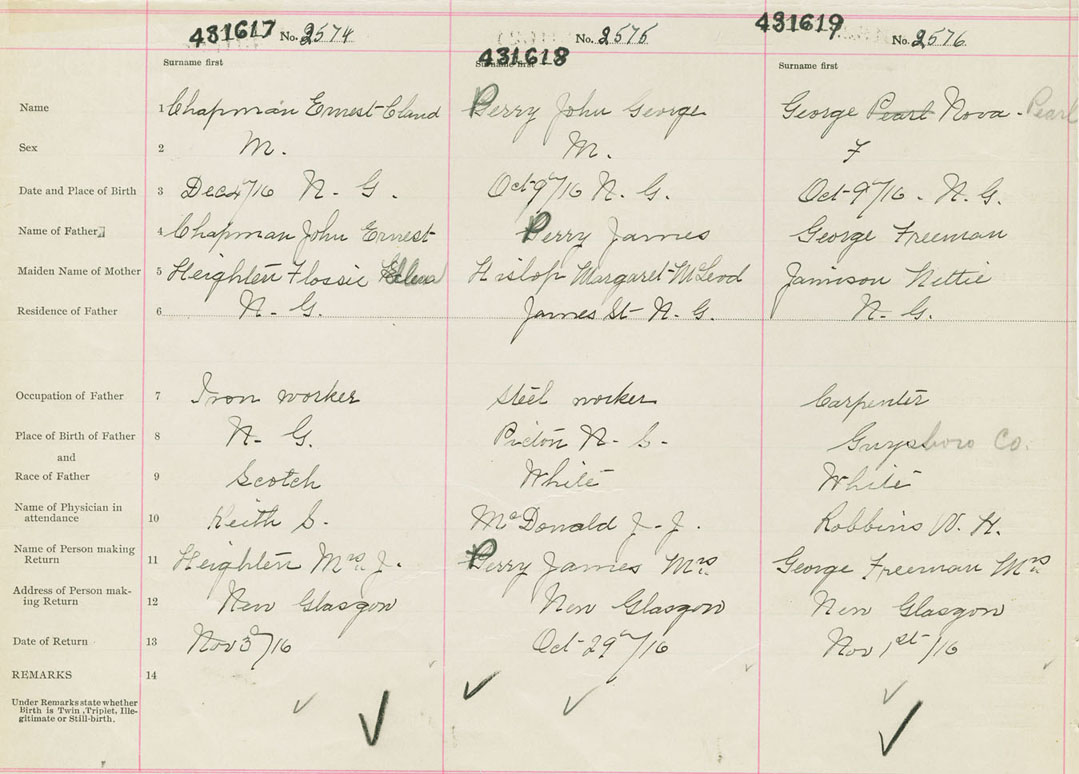 431617 No. 2574 No. 2575 431619 No. 2576
431618
Surname first Surname first Surname first
Name 1 Chapman Ernest Claud Perry John George George Pearl Nova - Pearl
Sex 2 M. M. F
Date and Place of Birth 3 Dec 4/16 N. G. Oct 9th/16 N. G. Oct 9th/16. N. G.
Name of Father 4 Chapman John Ernest Perry James George Freeman
Maiden Name of Mother 5 Heighten Flossie Hislop Margaret McLeod Jamison Nettie
Residence of Father 6 N. G. James St N. G. N. G.
Occupation of Father 7 Iron worker Steel worker Carpenter
Place of Birth of Father 8 N. G. Pictou N. S. Guysboro Co.
and
Race of Father 9 Scotch White White
Name of Physician in
attendance 10 Keith S. McDonald J. J. Robbins W. H.
Name of Person making
Return 11 Heighten Mrs J. Perry James Mrs George Freeman Mrs
Address of Person mak-
ing Return 12 New Glasgow New Glasgow New Glasgow
Date of Return 13 Nov 3rd/16 Oct 29th/16 Nov 1st/16
REMARKS 14
Under Remarks state whether
Birth is Twin, Triplet, Ille-
gitimate or Still-birth.